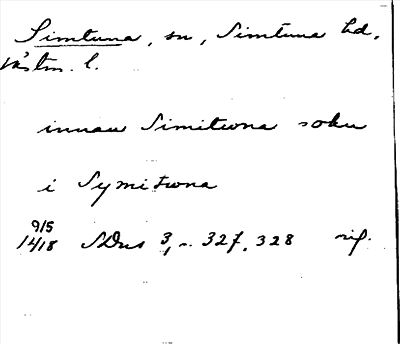 Simtuna, sn, Simtuna hd,
Västm. l.
innan Simitwna sokn
i Symitwna
9/5
1418 SDns 3, s. 327, 328 rif.